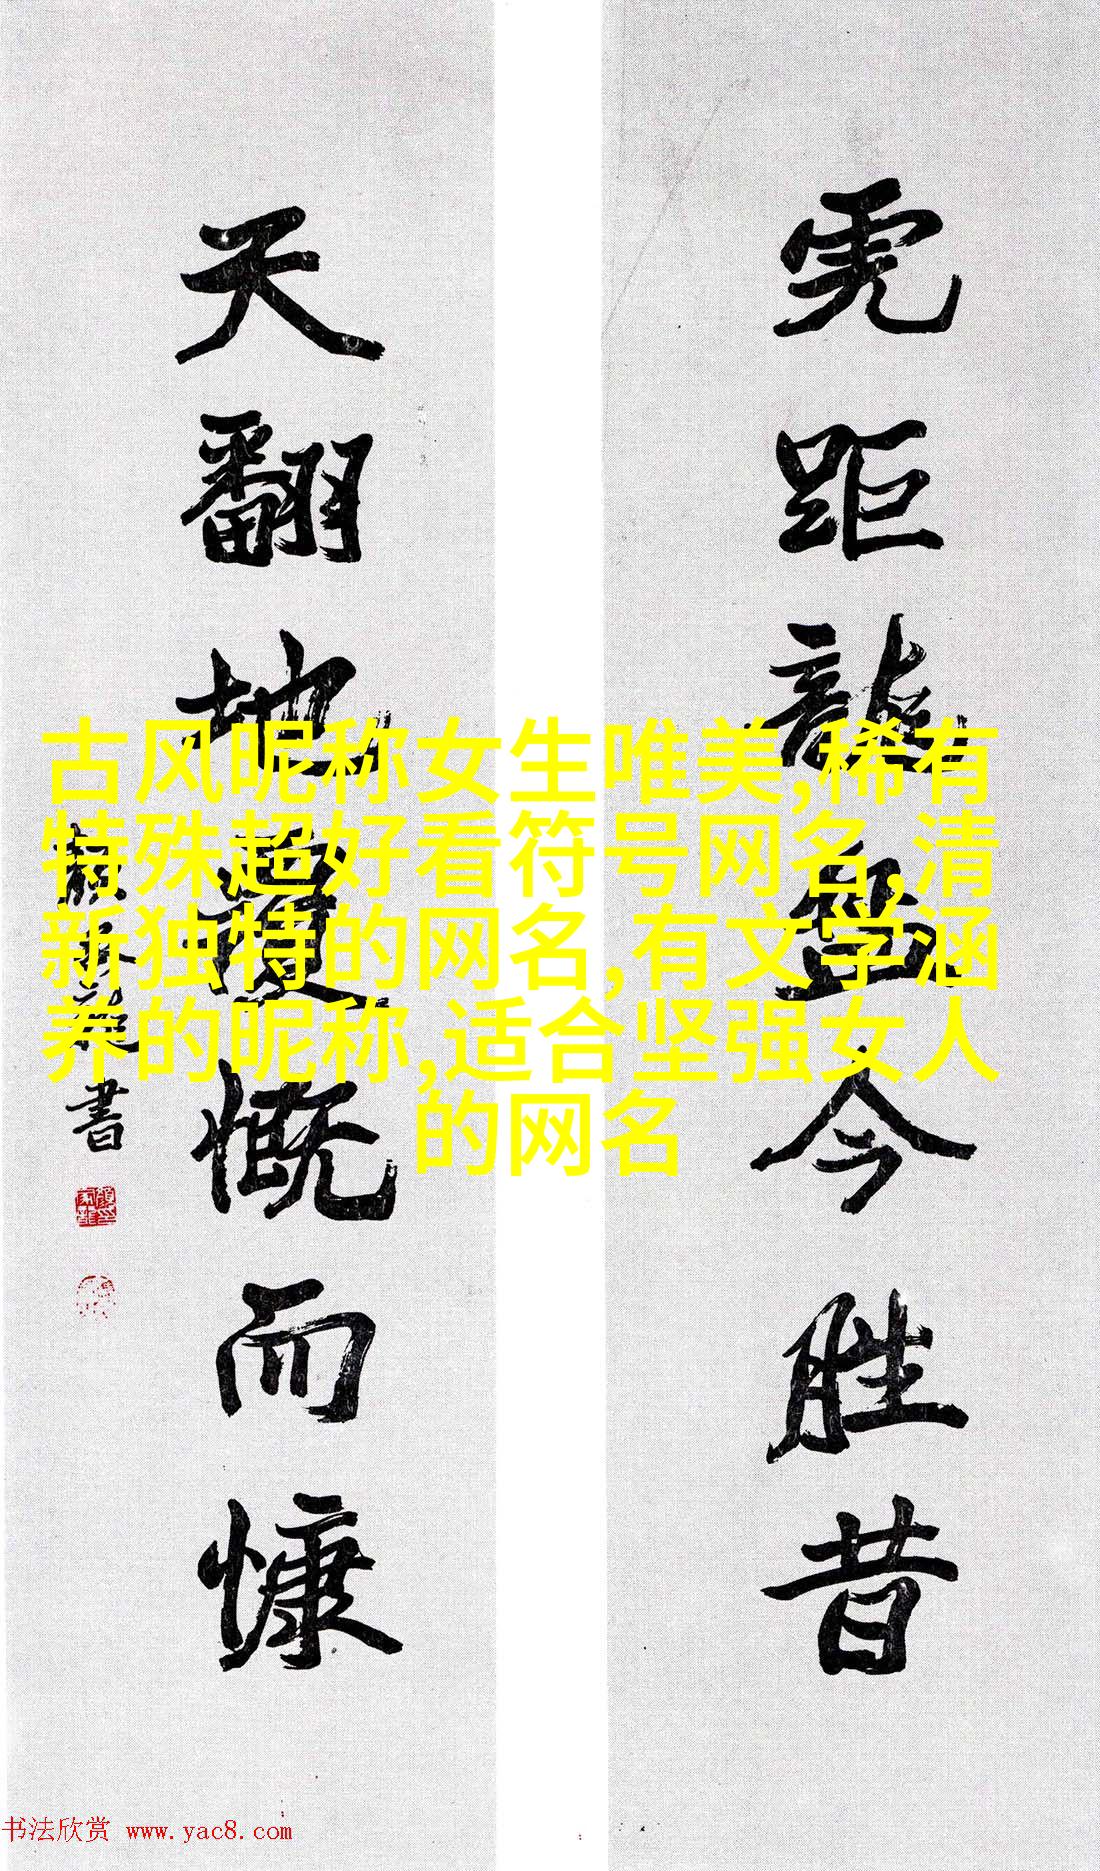 虎距龍盤今胜昔
天翻地覆慨而慷
書
古风昵称女生唯美,稀有
特殊超好看符号网名,清
新独特的网名,有文学涵
养的昵称,适合坚强女人
的网名
书法欣赏 www.yac8.com